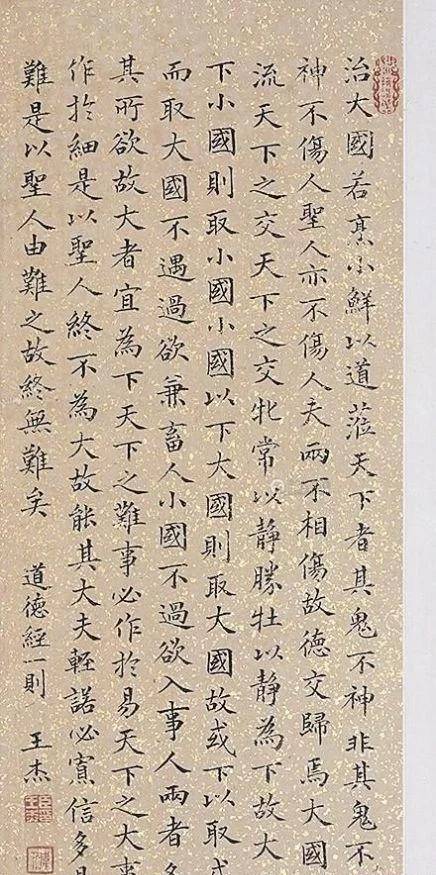 治大國若烹小鮮以道蒞天下者其鬼不神非其鬼不
神不傷人聖人亦不傷人夫兩不相傷故德交歸焉大國
流天下之交天下之交牝常以靜勝牡以靜為下故大
下小國則取小國小國以下大國則取大國故或下以取或
而取大國不遇過欲兼畜人小國不過欲入事人兩者各
其所欲故大者宜為下天下之難事必作於易天下之大事
作於細是以聖人終不為大故能其大夫輕諾必寡信多易
難是以聖人由難之故終無難矣 道德經一則 王杰